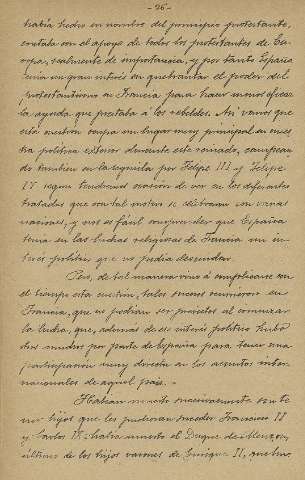 - 26 -
había hecho en nombre del principio protestante,
contaba con el apoyo de todos los protestantes de Eu-
ropa, realmente de importancia, y por tanto España
tenía un gran interés en quebrantar el poder del
protestantismo en Francia para hacer menos eficaz
la ayuda que prestaba á los rebeldes. Así vemos que
esta cuestión ocupa un lugar muy principal en nues-
tra política exterior durante este reinado,
do también en la seguida por Felipe III y Felipe
IV según tendremos ocasión de ver en los diferentes
tratados que con tal motivo se celebraron con varias
naciones, y no es fácil comprender que España
tenía en las luchas religiosas de Francia un in-
terés político que no podía descuidar.
Pero, de tal manera vino á complicarse con
el tiempo esta cuestión, tales sucesos ocurrieron en
Francia, que no podían ser previstos al comenzar
la lucha, que, además de ese interés político hubo
otros muchos por parte de España para tener una
participación muy directa en los asuntos inter-
nacionales de aquel país. -
Habían muerto sucesivamente sin te-
ner hijos que les pudieran suceder Francisco II
y Carlos IX: había muerto el Duque de Alençon,
último de los hijos varones de Enrique II, que